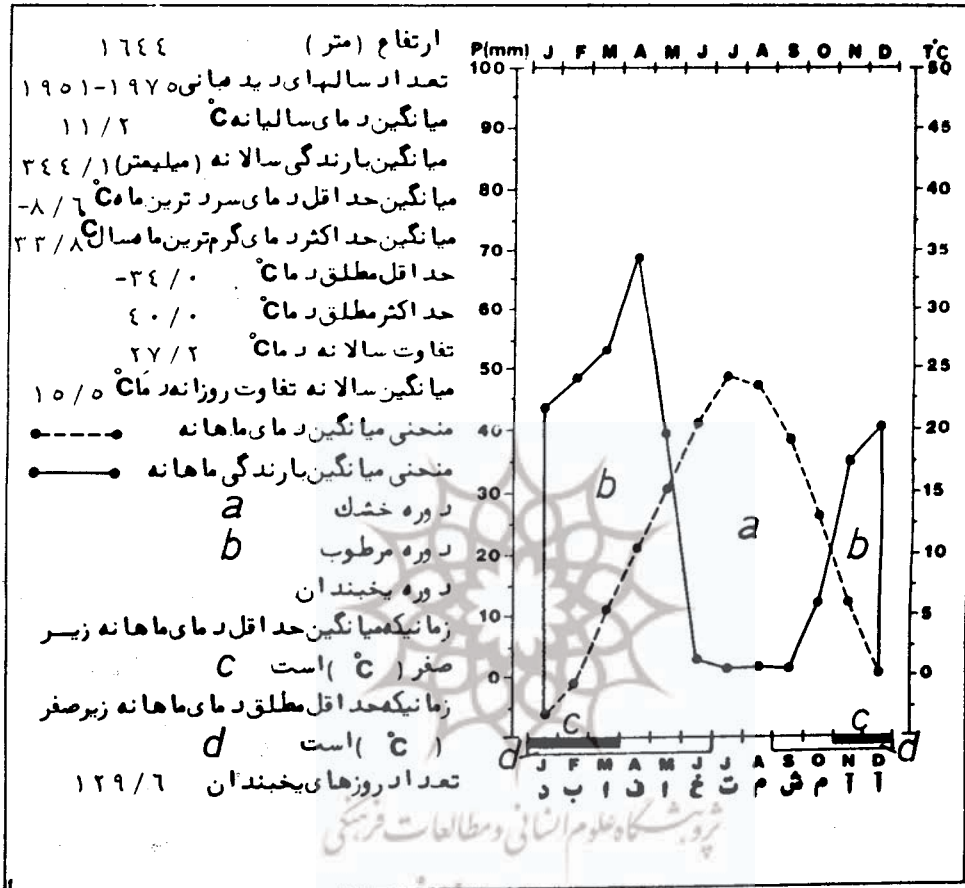 ارتفاع (متر) ١٦٤٤
تعداد سالهای دیدهبانی ١٩٧٥-١٩٥١
میانگین دمای سالیانه °C ١١/٢
میانگین بارندگی سالانه (میلیمتر) ٣٤٤/١
میانگین حداقل دمای سردترین ماه °C -٨/٦
میانگین حداکثر دمای گرم‌ترین ماه سال °C ٣٣/٨
حداقل مطلق دما °C -٣٤/٠
حداکثر مطلق دما °C ٤٠/٠
تفاوت سالانه دما °C ٢٧/٢
میانگین سالانه تفاوت روزانه دما °C ١٥/٥
منحنی میانگین دمای ماهانه
منحنی میانگین بارندگی ماهانه
دوره خشک a
دوره مرطوب b
دوره یخبندان
زمانیکه میانگین حداقل دمای ماهانه زیر
صفر (°C) است c
زمانیکه حداقل مطلق دمای ماهانه زیر صفر
(°C) است d
تعداد روزهای یخبندان ١٢٩/٦
P(mm) J F M A M J J A S O N D T°C
100 50
90 45
80 40
70 35
60 30
50 25
40 20
30 15
20 10
10 5
0 0
b a b
c c
d d
J F M A M J J A S O N D
د ب ا ف ا خ ت م ش م آ آ
پژوهشگاه علوم انسانی و مطالعات فرهنگی